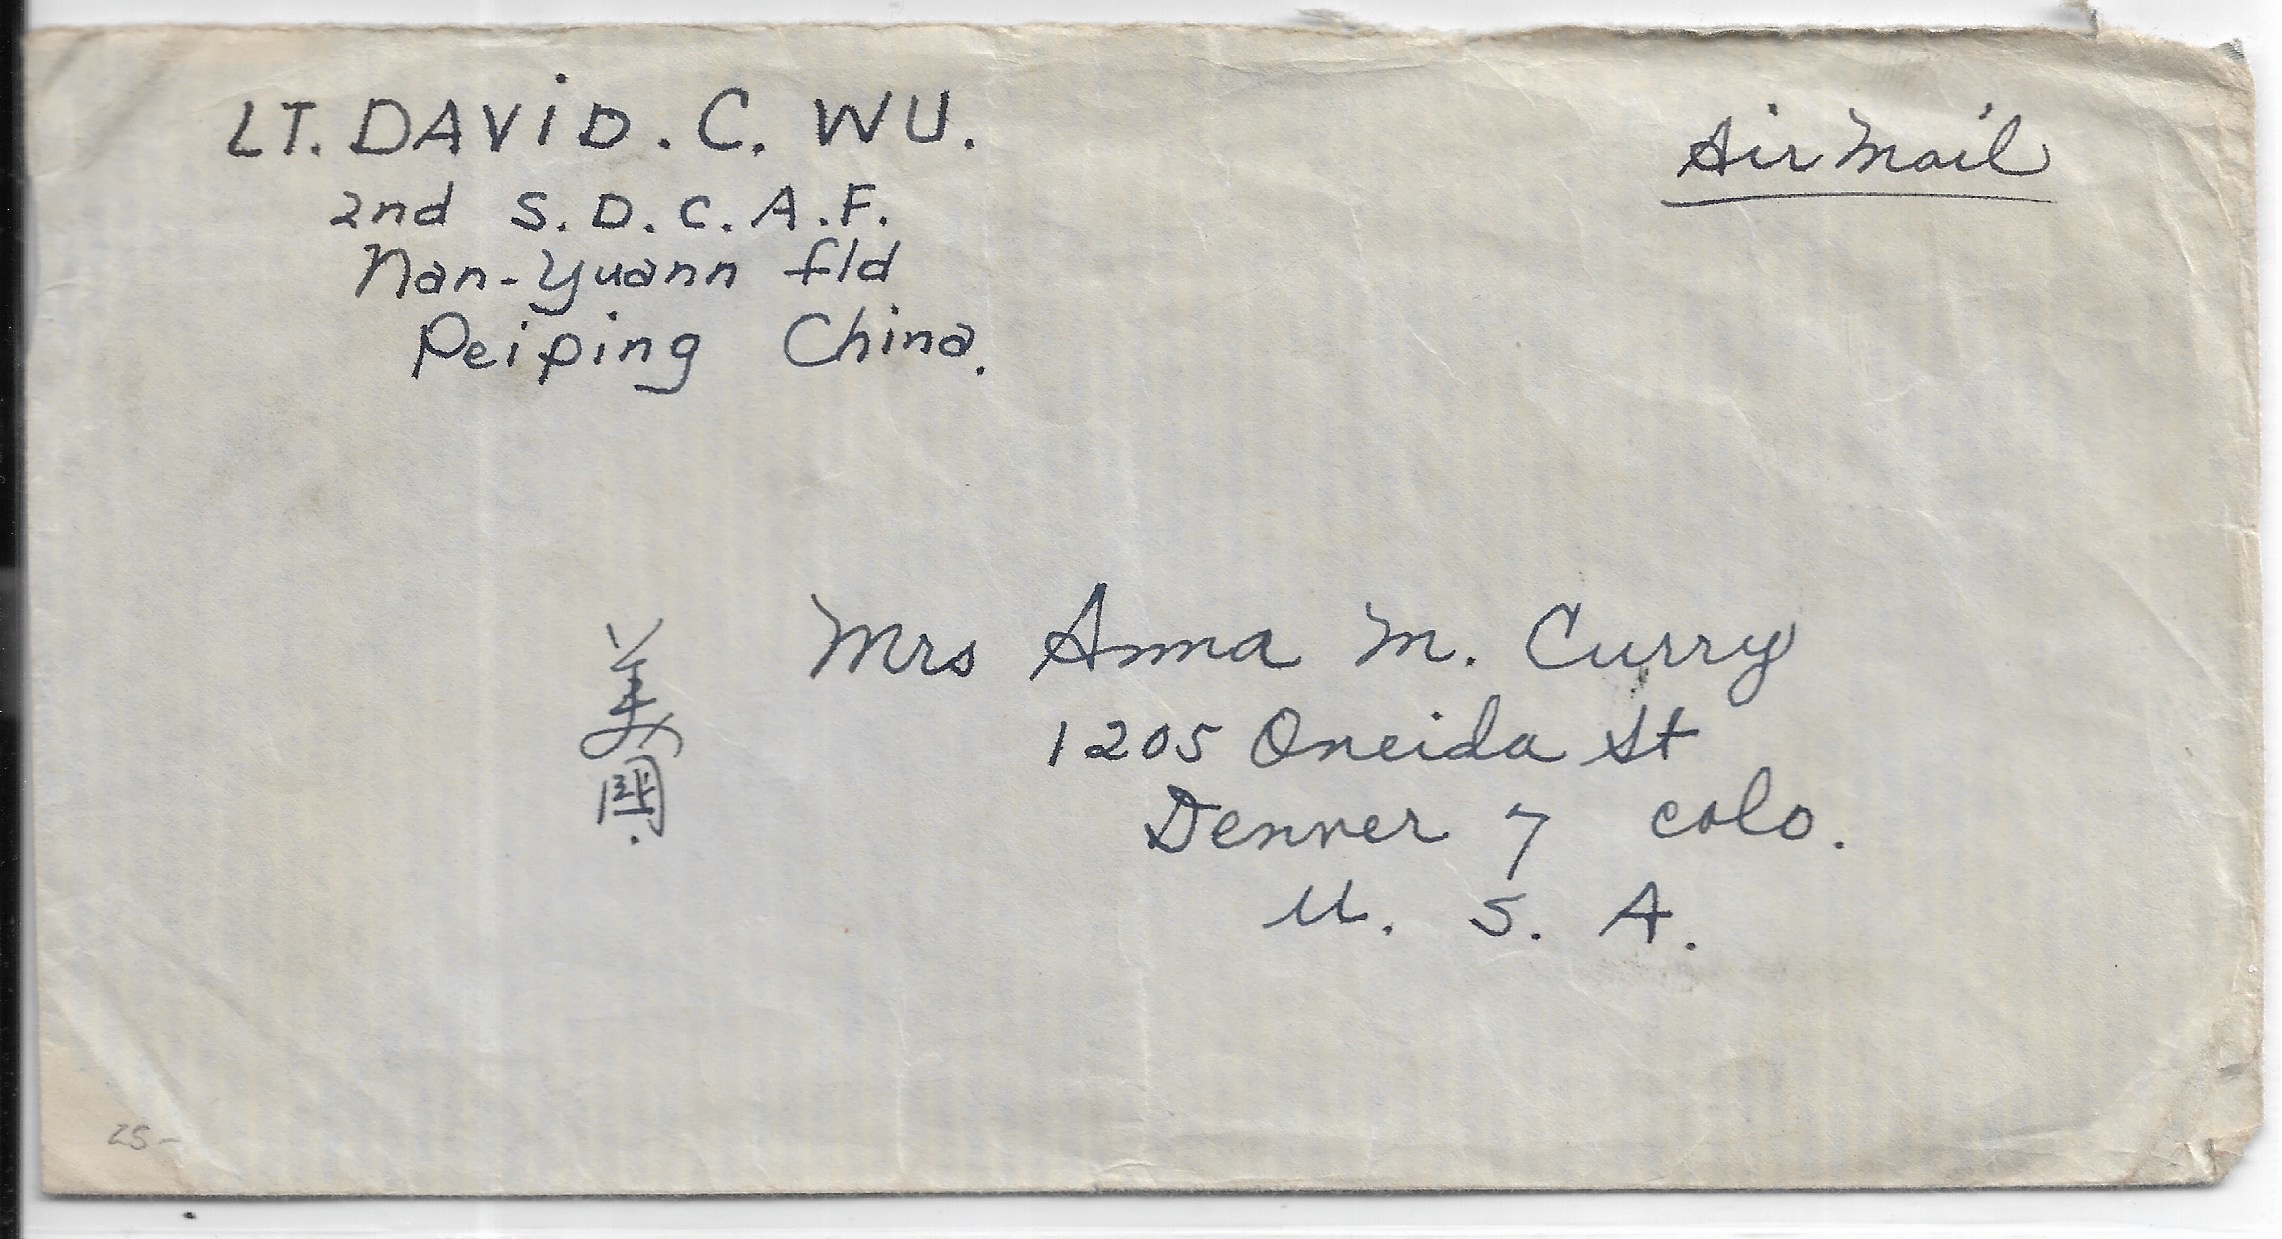 LT. DAViD. C. WU.
2nd S. D. C. A. F.
Nan-Yuann fld
Peiping China.
Air Mail
美國.
Mrs Anna M. Curry
1205 Oneida St
Denver 7 colo.
U. S. A.
25-